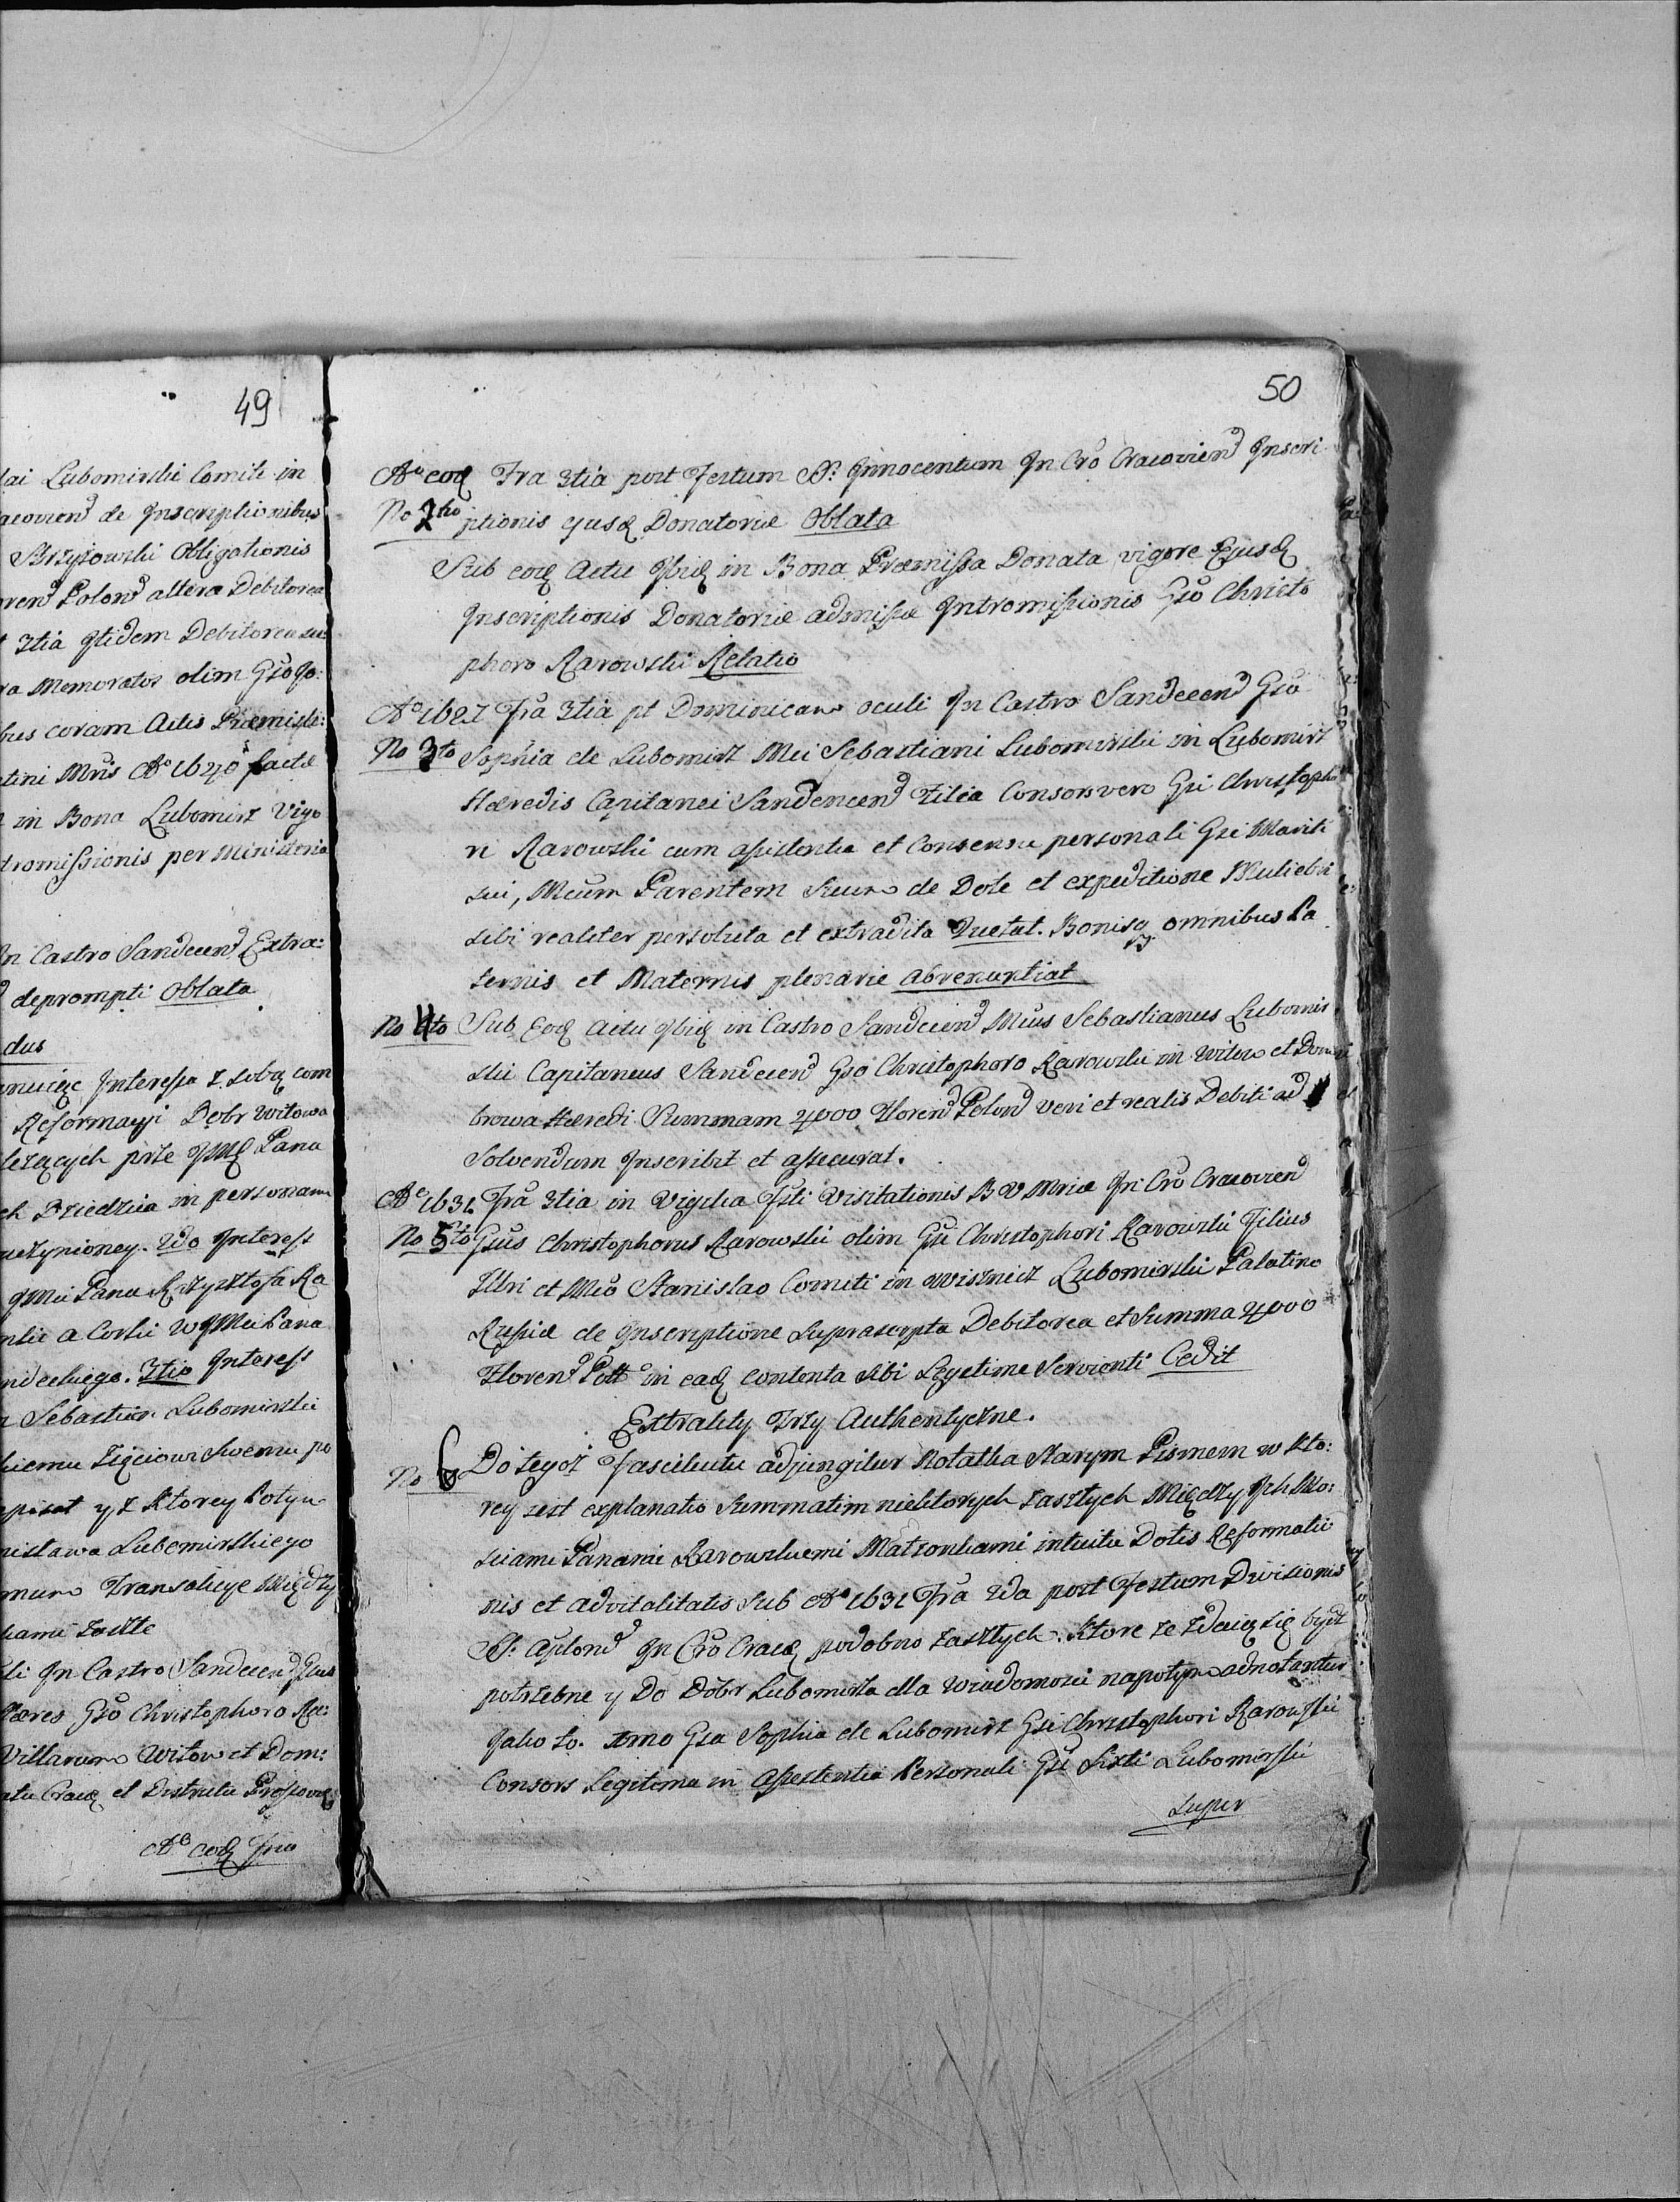 49
lai Lubomirski Comiti in
acovien de Inscriptionibus
Brzyjowski Obligationis
oren Polon altera Debitorea
3tia itidem Debitorea su
ra Memoratos olim Gso Jo:
bus coram Actis Præmisli:
tini Mris Ao 1640 factæ
in Bona Lubomirz Vigo
tromissionis per Ministeria
n Castro Sandecen Extra:
deprompti Oblata
dus
Interessa z sobą com
Reformacyi Dobr Witowa
leżących prze JMć Pana
ch Dziedzica in personam
uczynioney. 2do Interess
JMci Pana Krzysztofa Ra
a Corki W JMci Pana
ndeckiego. 3tio Interess
a Sebastian Lubomirski
kiemu Zięciowi Swemu po
y z Ktorey Potym
nisława Lubomirskiego
Transakcye Między
kami zaszłe
In Castro Sandecen Gsus
Hæres Gso Christophoro Ra:
Villarum Witow et Dom:
atu Crac et Districtu Prossov
Ao eod fria
50
Ao eod Fra 3tia post Festum S. Innocentum In Cro Cracovien Inscri
No 2do ptionis ejusd Donatoriæ Oblata
Sub eod Actu Ibid in Bona Præmissa Donata vigore Ejusd
Inscriptionis Donatoriæ admissæ Intromissionis Gso Christo
phoro Rarowski Relatio
Ao 1627 Fra 3tia pt Dominicam oculi In Castro Sandecen Gsa
No 3to Sophia de Lubomirz Mci Sebastiani Lubomirski in Lubomirz
Hæredis Capitanei Sandencen Filia Consors vero Gsi Christopho
ri Rarowski cum assistentia et Consensu personali Gsi Mariti
sui, Mcum Parentem Suum de Dote et expeditione Muliebri
sibi realiter persoluta et extradita Quetat. Bonisq omnibus Pa
ternis et Maternis plenarie abrenuntiat
No 4to Sub Eod Actu Ibid in Castro Sandecen Mcus Sebastianus Lubomir
ski Capitaneus Sandecen Gso Christophoro Rarowski in Witow et Dom
browa Hæredi Summam 4000 Floren Polon veri et realis Debiti ad
Solvendum Inscribit et assecurat.
Ao 1631 Fra 3tia in Vigilia Fsti Visitationis B V Mriæ In Cro Cracovien
No 5to Gsus Christophorus Rarowski olim Gsi Christophori Rarowski Filius
Illri et Mco Stanislao Comiti in Wisznicz Lubomirski Palatino
Russiæ de Inscriptione Suprascripta Debitorea et Summa 4000
Floren Poll in ead contenta sibi Legitime Servienti Cedit
Extrakty Trzy Authentyczne.
No 6 Do tegoż Fascikułu adjungitur Notatka Starym Pismem w kto:
rey jest explanatio Summatim niektorych zaszłych Między Ich Mo:
sciami Panami Rarowskiemi Małżonkami intuitu Dotis Reformatio
nis et advitalitatis Sub Ao 1631 Fra 2da post Festum Divisionis
S. Aplor In Cro Crac podobno zaszłych. Ktore że zdaią się bydź
potrzebne y Do Dobr Lubomirza dla wiadomosci napotym adnotantur
Jako to. 1mo Gsa Sophia de Lubomirz Gsi Christophori Rarowski
Consors Legitima in Assistentia Personali Gsi Sixti Lubomirski
super